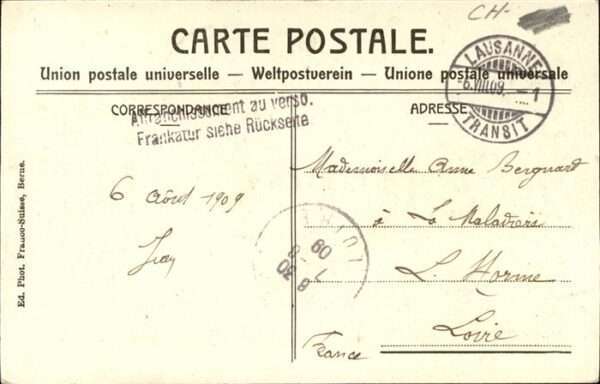 CH-
CARTE POSTALE.
Union postale universelle — Weltpostverein — Unione postale universale
LAUSANNE
6.VIII.09. - 1
TRANSIT
CORRESPONDANCE
ADRESSE
Affranchissement au verso.
Frankatur siehe Rückseite
6 Août 1909
Mademoiselle Anne Bergnard
à La Maladière
L. Horme
Loire
France
Ed. Phot. Franco-Suisse, Berne.